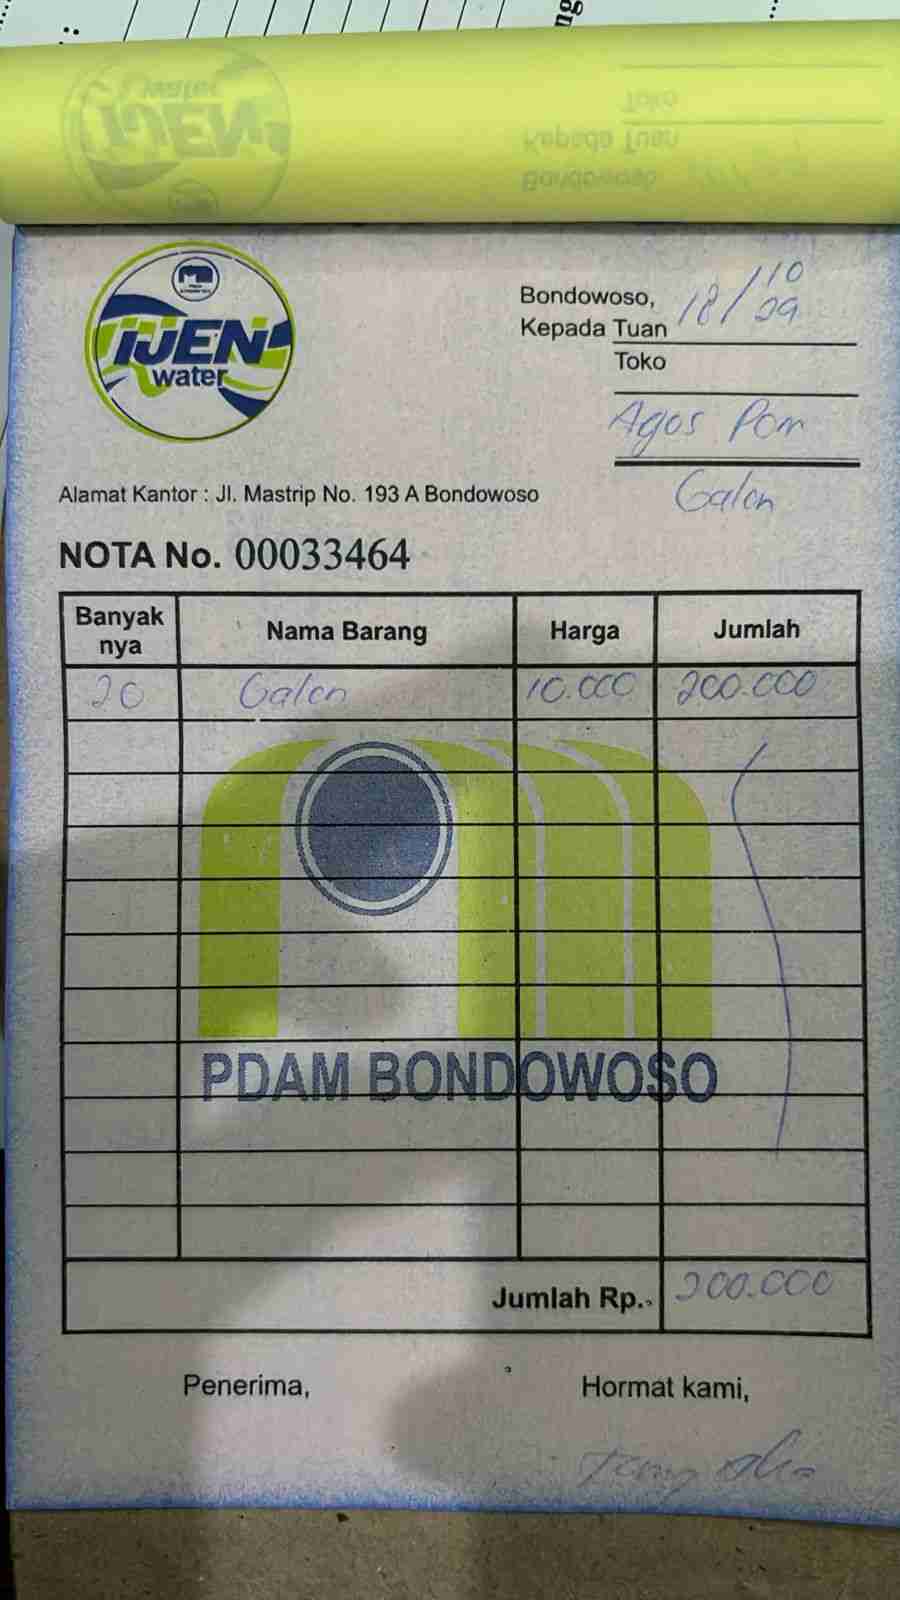 IJEN
water
Bondowoso, 18/10
Kepada Tuan
Toko
Agos Pom
Galon
Alamat Kantor : Jl. Mastrip No. 193 A Bondowoso
NOTA No. 00033464
Banyak nya Nama Barang Harga Jumlah
20 Galon 10.000 200.000
PDAM BONDOWOSO
Jumlah Rp. 200.000
Penerima, Hormat kami,